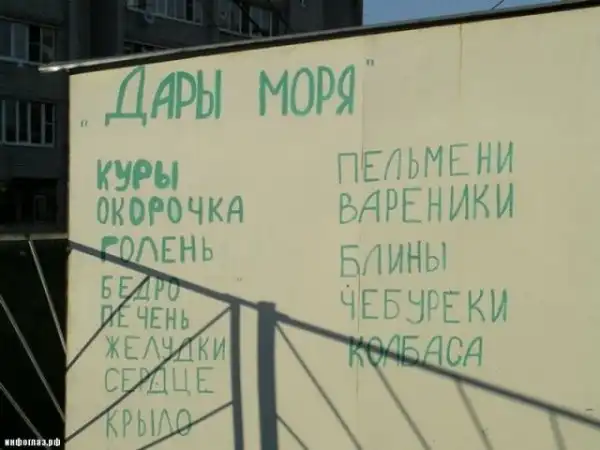 „ДАРЫ МОРЯ"
КУРЫ
ОКОРОЧКА
ГОЛЕНЬ
БЕДРО
ПЕЧЕНЬ
ЖЕЛУДКИ
СЕРДЦЕ
КРЫЛО
ПЕЛЬМЕНИ
ВАРЕНИКИ
БЛИНЫ
ЧЕБУРЕКИ
КОЛБАСА
инфоглаз.рф